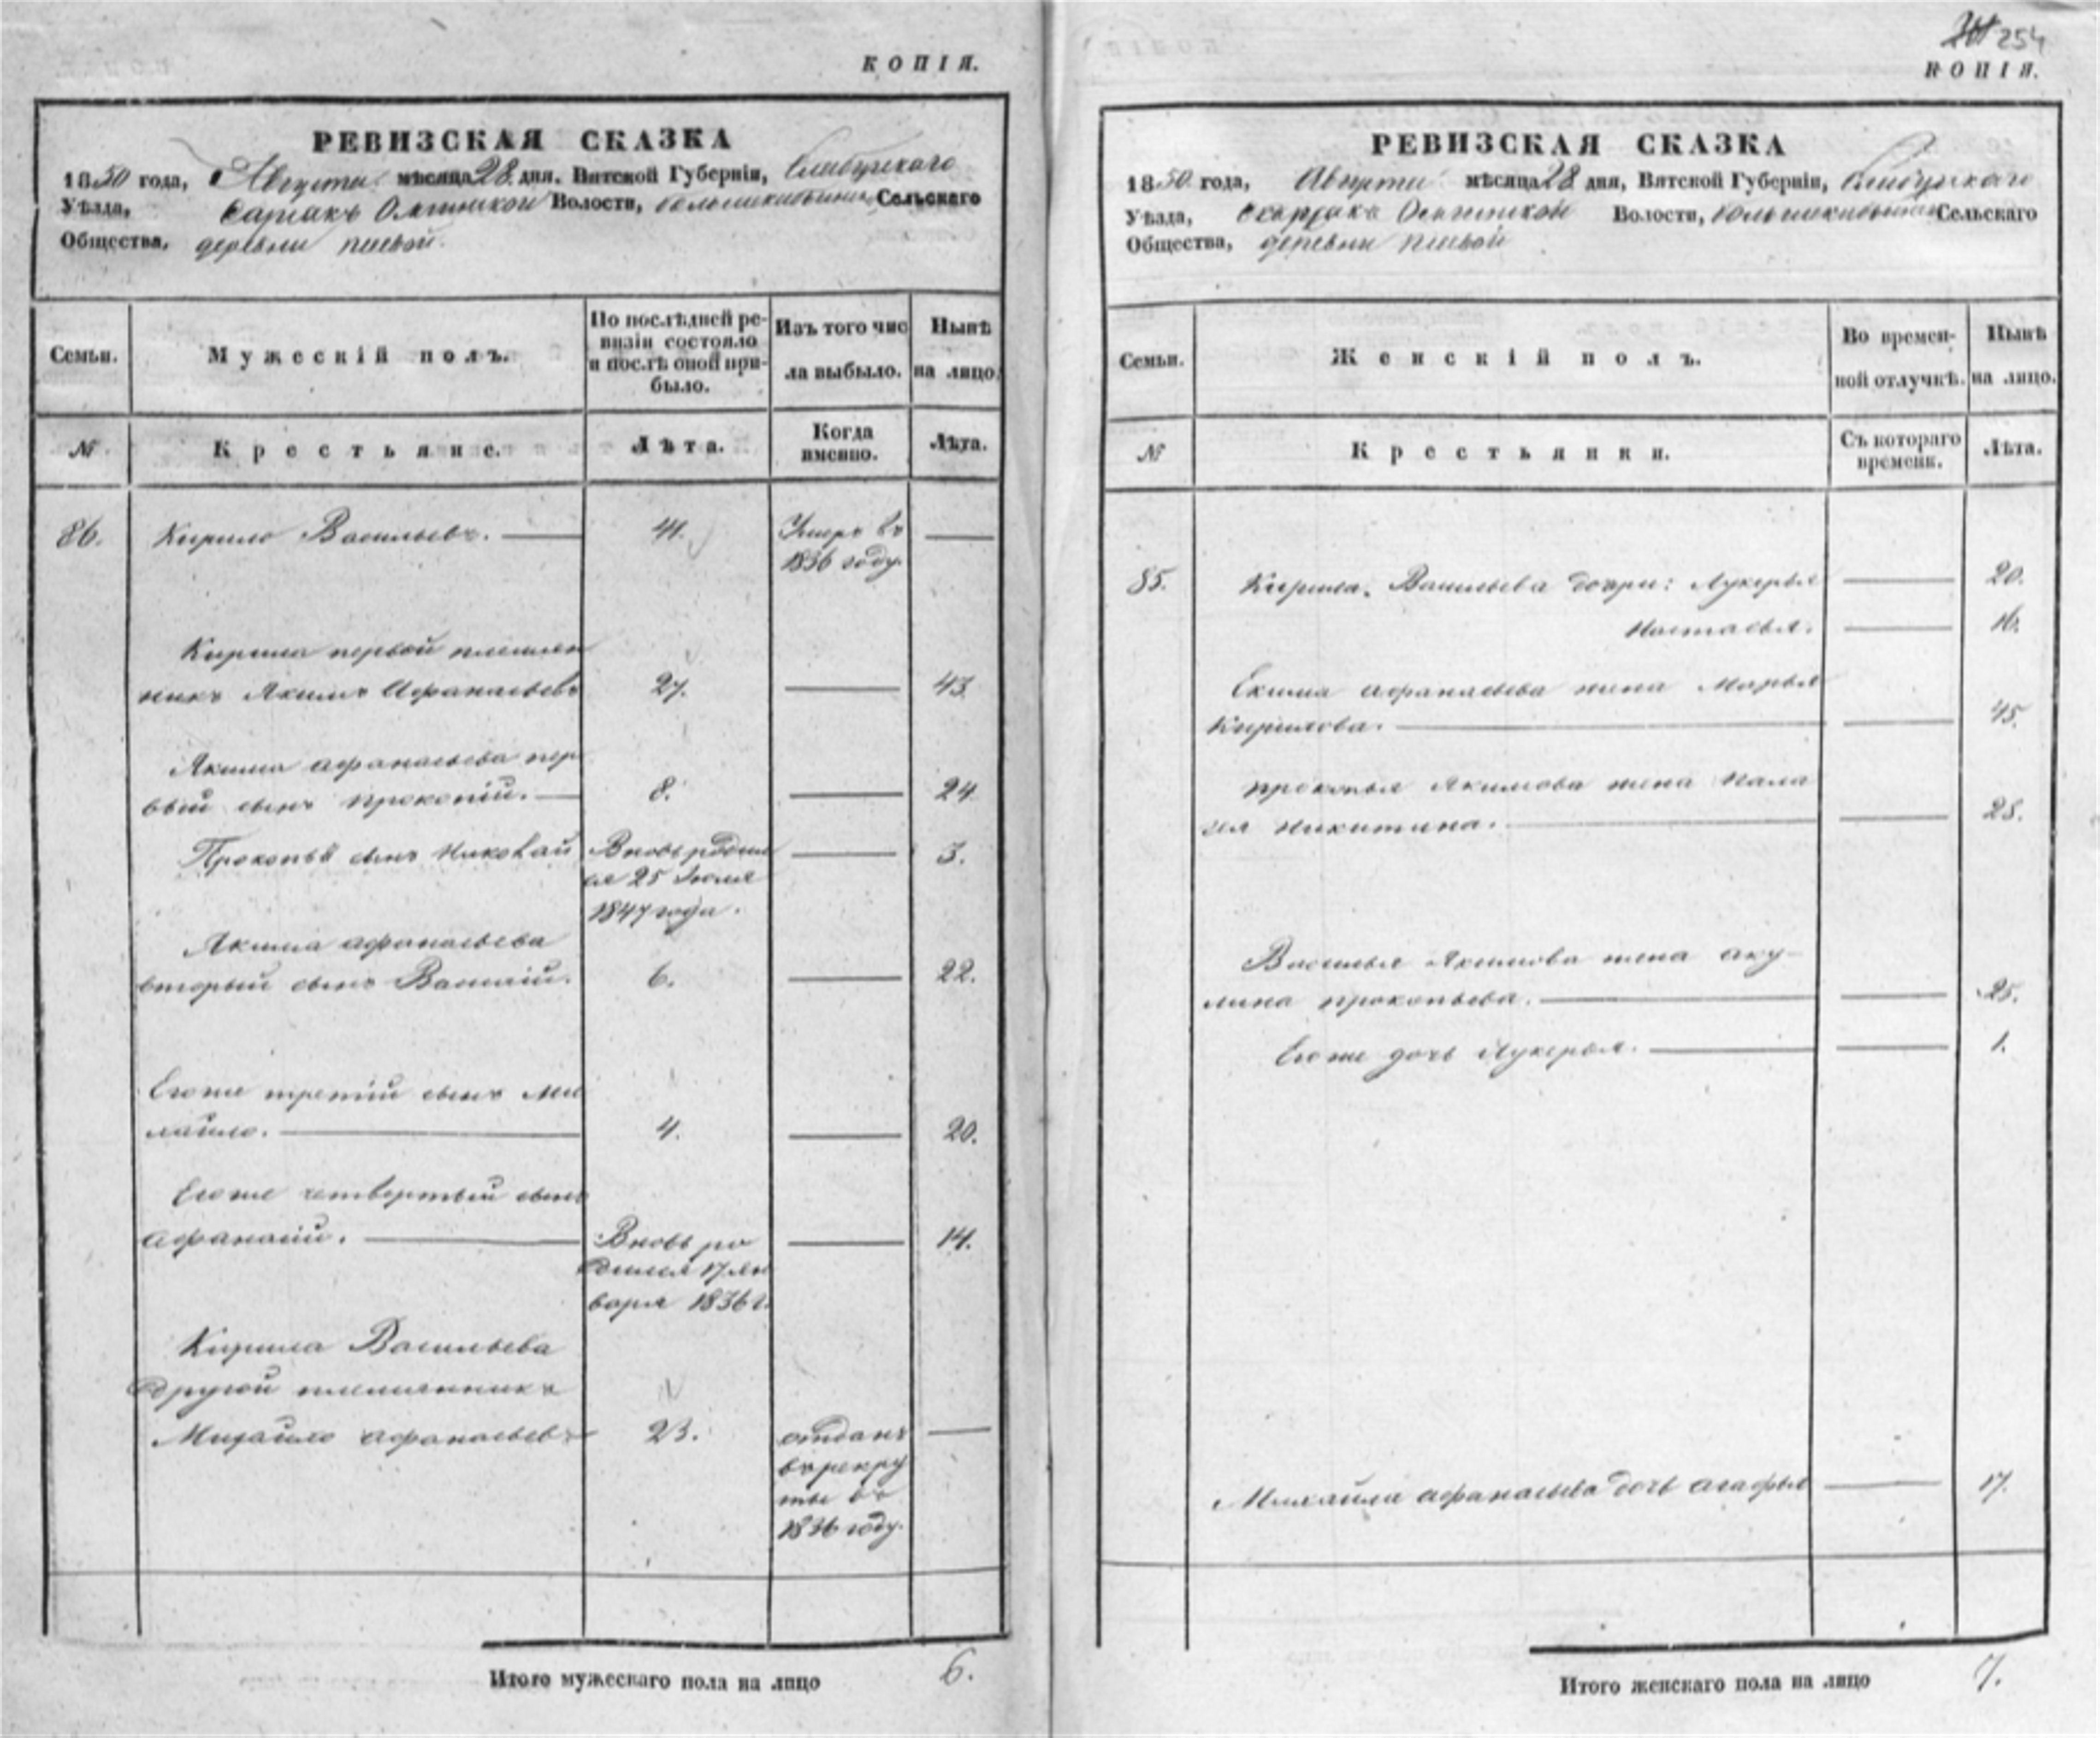 КОПІЯ.
РЕВИЗСКАЯ СКАЗКА
1850 года, Августа мѣсяца 28 дня, Вятской Губерніи,
Уѣзда, Волости, Сельскаго
Общества, деревни
Семьи.
Мужескій полъ.
По послѣдней ре-
визіи состояло
и послѣ оной при-
было.
Изъ того чис
ла выбыло.
Нынѣ
на лицо.
№
Крестьяне.
Лѣта.
Когда
именно.
Лѣта.
86. Кирило Васильевъ. 41. Умеръ въ
1836 году.
Кирила первой племян
никъ Якимъ Афанасьевъ 27. 43
Якима афанасьева пер
вый сынъ прокопій. 8. 24
Прокопья сынъ Николай Вновь родил 3.
ся 25 Іюля
1847 года.
Якима афанасьева
вторый сынъ Василій. 6. 22.
Егоже третій сынъ Ми
хайло. 4. 20.
Егоже четвертый сынъ
афанасій. Вновь ро 14.
дился 17 ян
варя 1836 г.
Кирила Васильева
другой племянникъ
Михайло афанасьевъ 23. отданъ
въ рекру
ты въ
1836 году.
Итого мужескаго пола на лицо 6.
254
КОПІЯ.
РЕВИЗСКАЯ СКАЗКА
1850 года, Августа мѣсяца 28 дня, Вятской Губерніи,
Уѣзда, Волости, Сельскаго
Общества, деревни
Семьи.
Женскій полъ.
Во времен-
ной отлучкѣ.
Нынѣ
на лицо.
№
Крестьянки.
Съ котораго
времени.
Лѣта.
85. Кирила Васильева дочри: Лукерья 20.
Настасья. 16.
Екима афанасьева жена Марья
Кирилова. 45.
прокопья Якимова жена Пала
гея Никитина. 28.
Василья Якимова жена аку-
лина прокопьева. 25.
Егоже дочь Лукерья. 1.
Михайла афанасьева дочь агафья 17.
Итого женскаго пола на лицо 7.